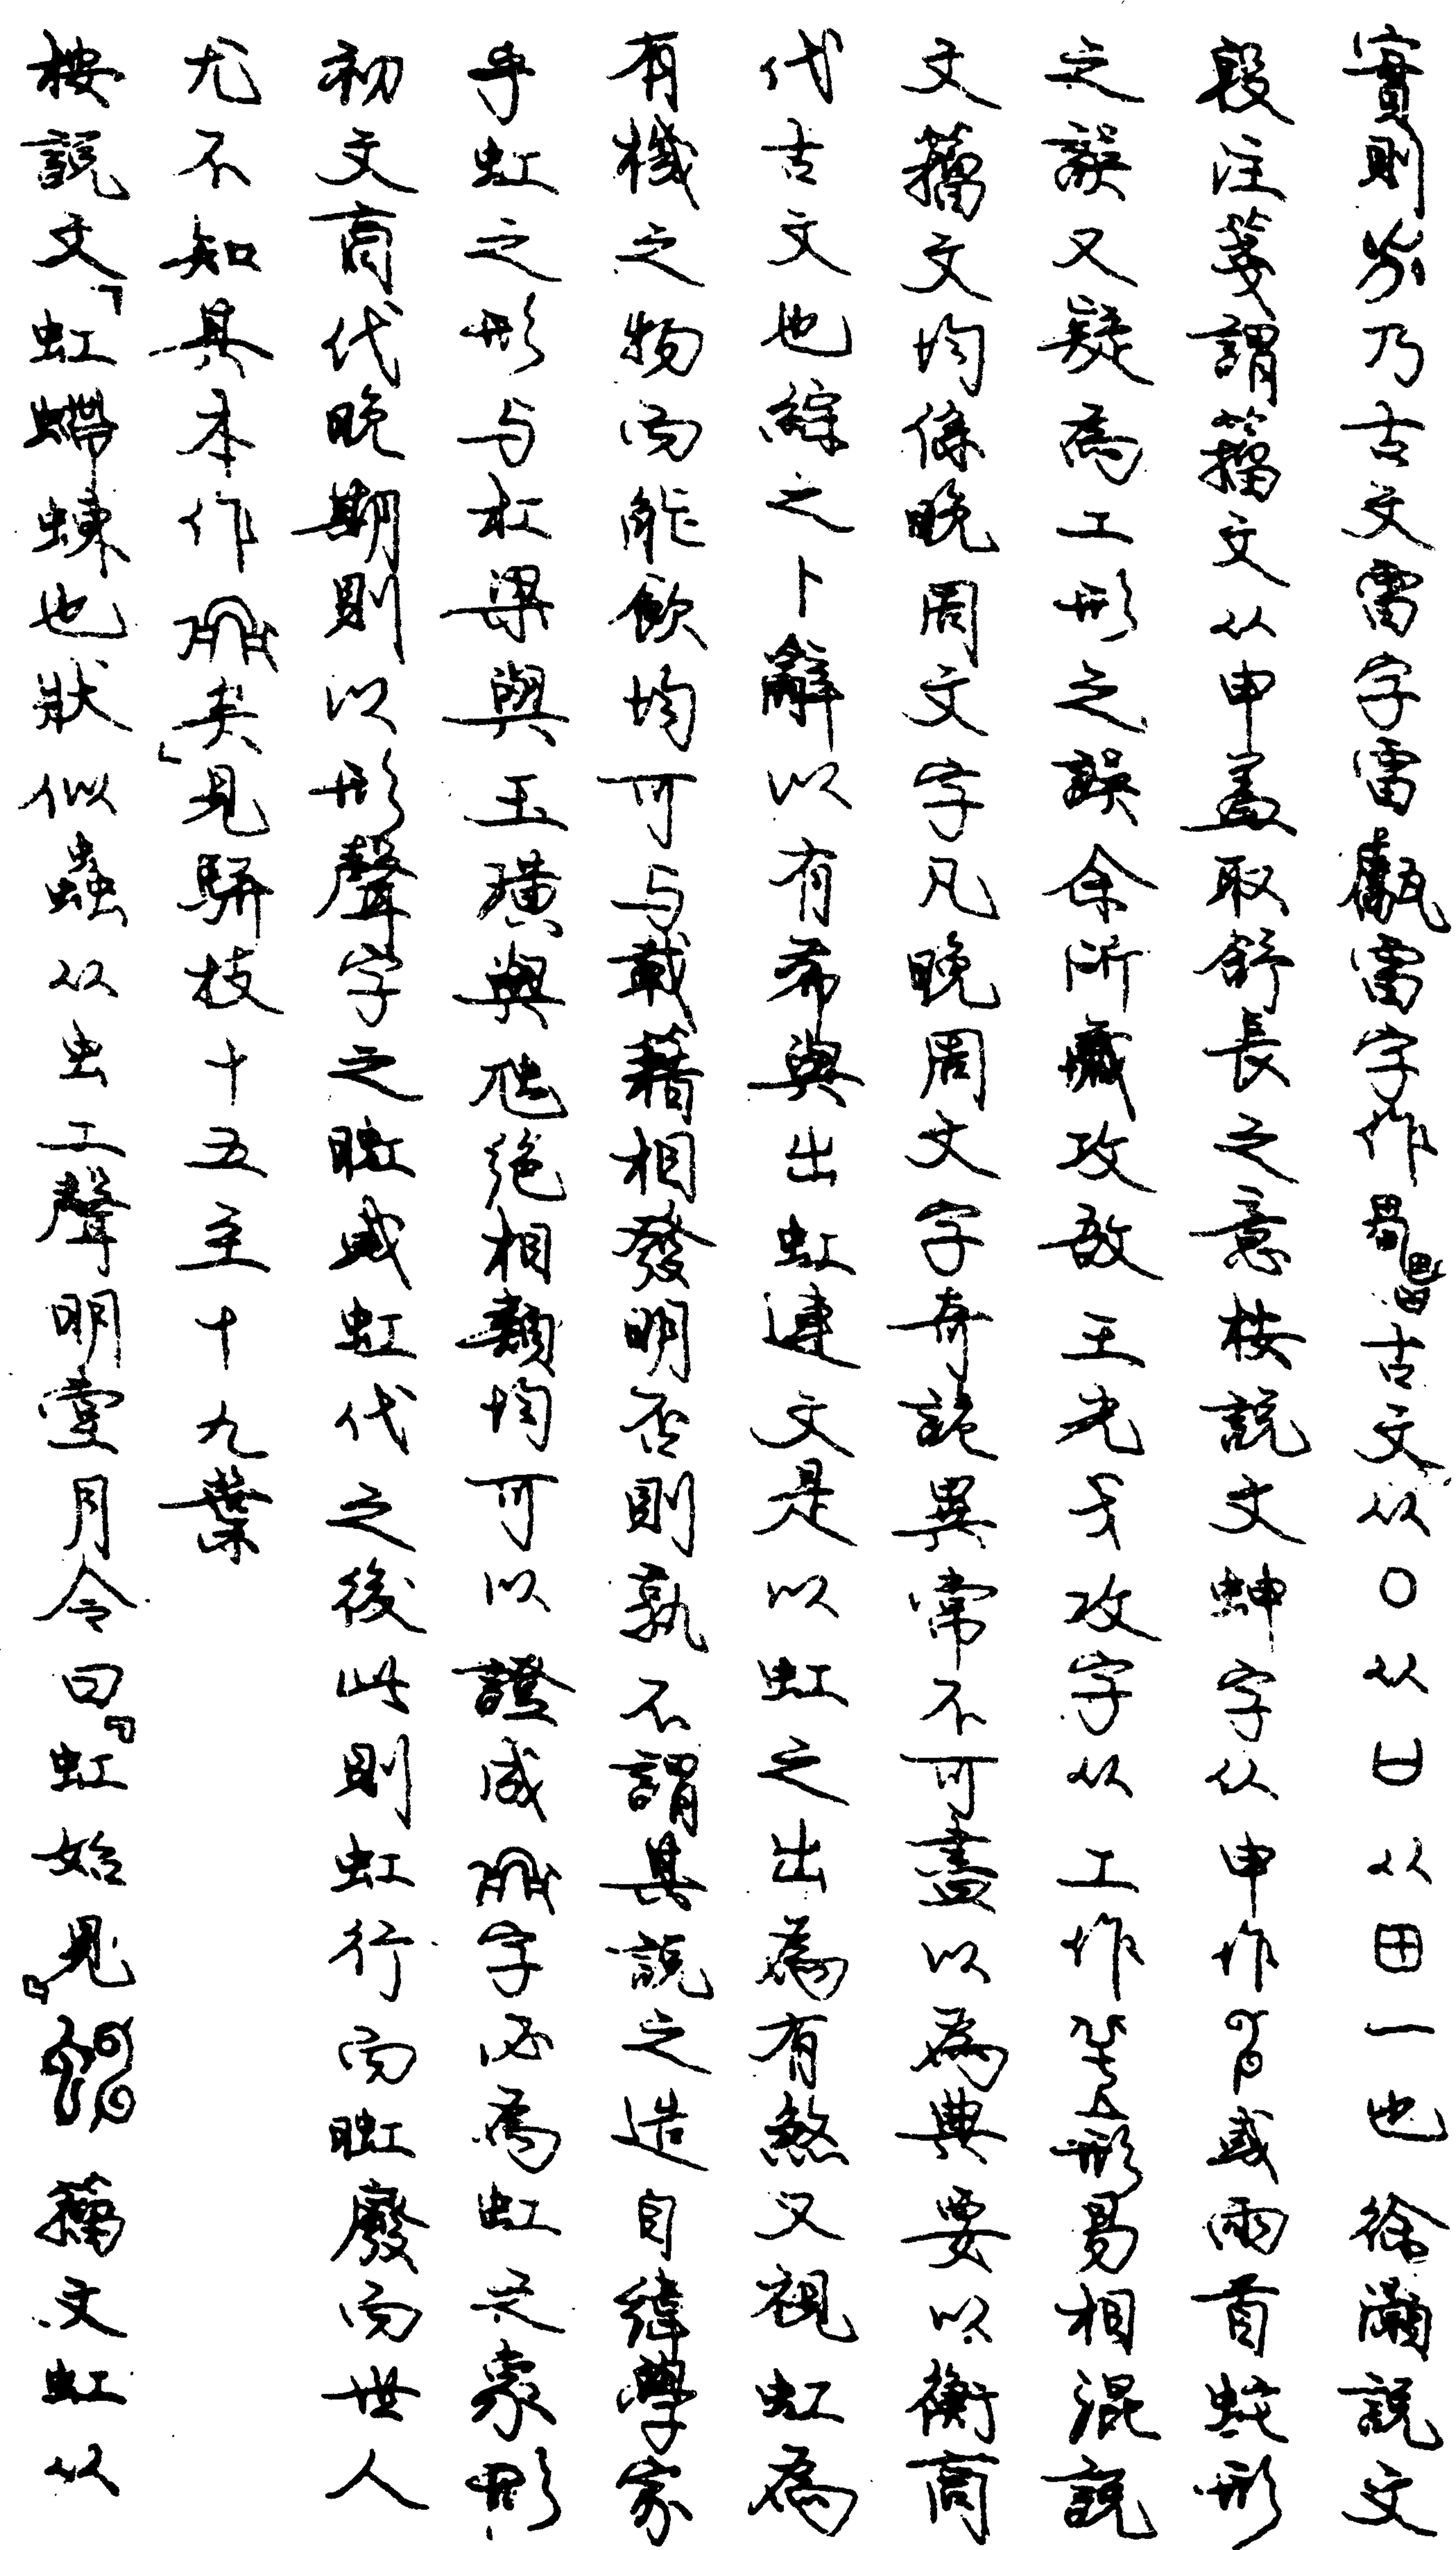 實則乃古文雷字雷甗雷字作古文从〇从口从田一也徐灝說文
段注箋謂籀文从申蓋取舒長之意桉說文蚺字从申作或兩首蛇形
之誤又疑為工形之誤余所藏攻敔王光戈攻字从工作形易相混說
文籀文均係晚周文字凡晚周文字奇詭異常不可盡以為典要以衡商
代古文也綜之卜辭以有希與出虹連文是以虹之出為有煞又視虹為
有機之物而能飲均可与載籍相發明否則孰不謂其說之造自緯學家
乎虹之形与杠梁與玉璜與虺絕相類均可以證成字必為虹之象形
初文商代晚期則以形聲字之䖟或虹代之後此則虹行而廢而世人
尤不知其本作矣」見駢枝十五至十九葉
桉說文「虹螮蝀也狀似蟲从虫工聲明堂月令曰『虹始見』籀文虹从